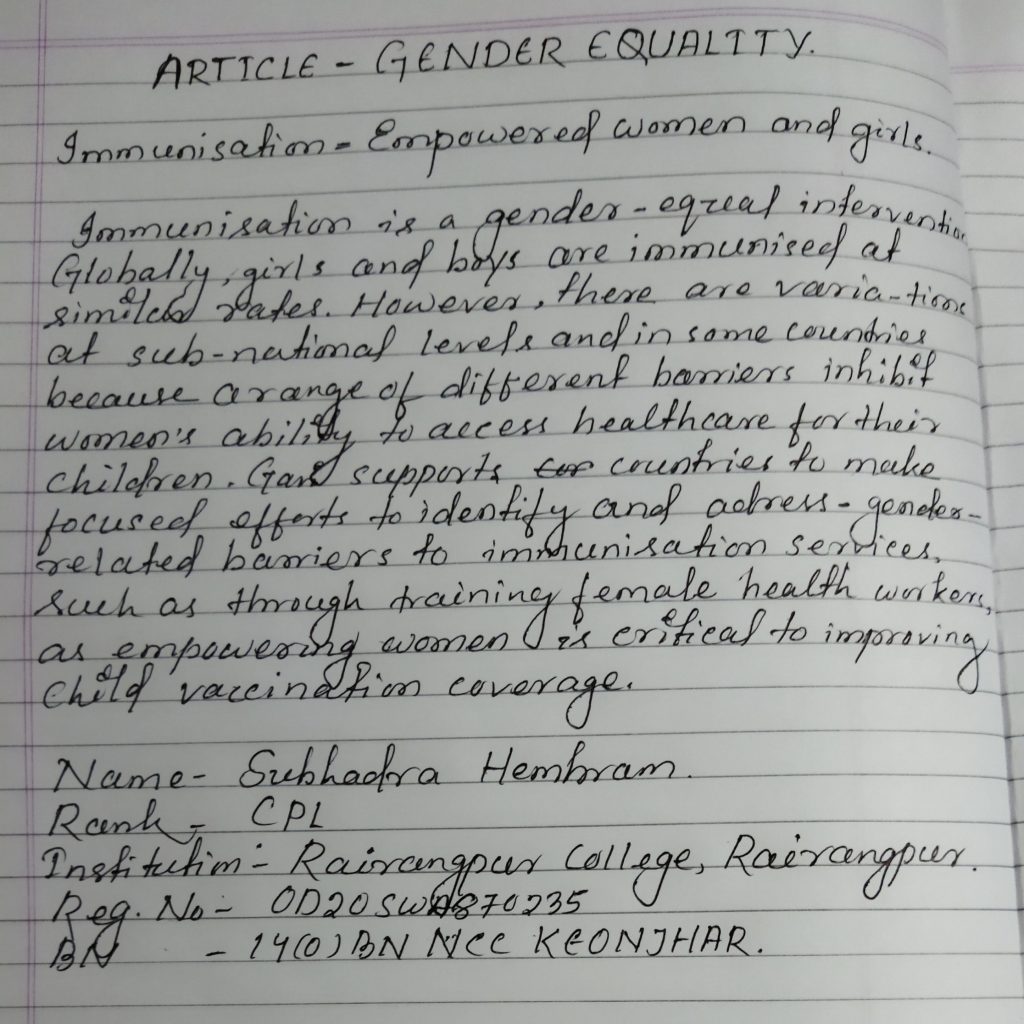 ARTICLE - GENDER EQUALITY.
Immunisation - Empowered women and girls.
Immunisation is a gender-equal intervention
Globally, girls and boys are immunised at
similar rates. However, there are varia-tions
at sub-national levels and in some countries
because a range of different barriers inhibit
women's ability to access healthcare for their
children. Gavi supports countries to make
focused efforts to identify and adress-gender-
related barriers to immunisation services,
such as through training female health workers,
as empowering women is critical to improving
child vaccination coverage.
Name- Subhadra Hembram.
Rank - CPL
Institution - Rairangpur College, Rairangpur.
Reg. No - OD20SWA870235
BN - 14(O)BN NCC KEONJHAR.